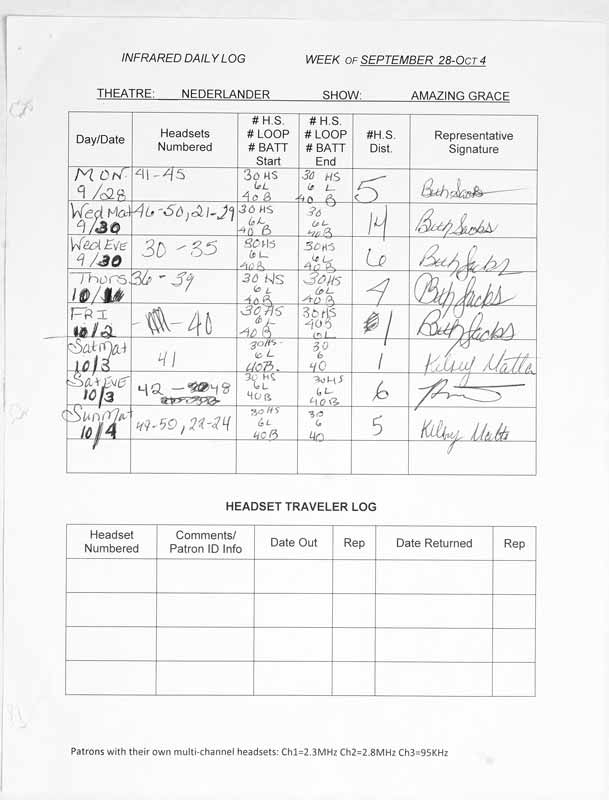 INFRARED DAILY LOG WEEK OF SEPTEMBER 28-OCT 4
THEATRE: NEDERLANDER SHOW: AMAZING GRACE
Day/Date Headsets Numbered # H.S. # LOOP # BATT Start # H.S. # LOOP # BATT End #H.S. Dist. Representative Signature
MON 9/28 41-45 30HS 6L 40B 30 HS 6 L 40 B 5 Beth Jacks
Wed Mat 9/30 46-50, 21-29 30HS 6L 40B 30 6L 40B 14 Beth Jacks
Wed EVE 9/30 30-35 30HS 6L 40B 30HS 6L 40B 6 Beth Jacks
Thurs 10/1 36-39 30 HS 6L 40B 30HS 6L 40B 4 Beth Jacks
FRI 10/2 - 40 30HS 6L 40B 30HS 40B 6L 1 Beth Jacks
Sat Mat 10/3 41 30HS 6L 40B. 30 6 40 1 Kelsey
Sat EVE 10/3 42 - 48 30 HS 6L 40B 30HS 6L 40B 6
Sun Mat 10/4 49-50, 22-24 30HS 6L 40B 30 6 40 5
HEADSET TRAVELER LOG
Headset Numbered Comments/ Patron ID Info Date Out Rep Date Returned Rep
Patrons with their own multi-channel headsets: Ch1=2.3MHz Ch2=2.8MHz Ch3=95KHz